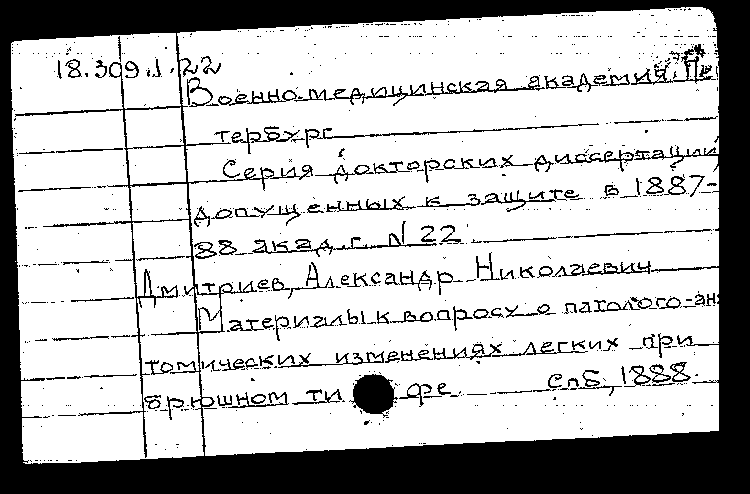 18.309.1.22
Военно-медицинская академия. Пе
тербург
Серия докторских диссертаций,
допущенных к защите в 1887-
88 акад. г. N 22
Дмитриев, Александр Николаевич
Материалы к вопросу о патолого-ана
томических изменениях легких при
брюшном ти фе. Спб, 1888.